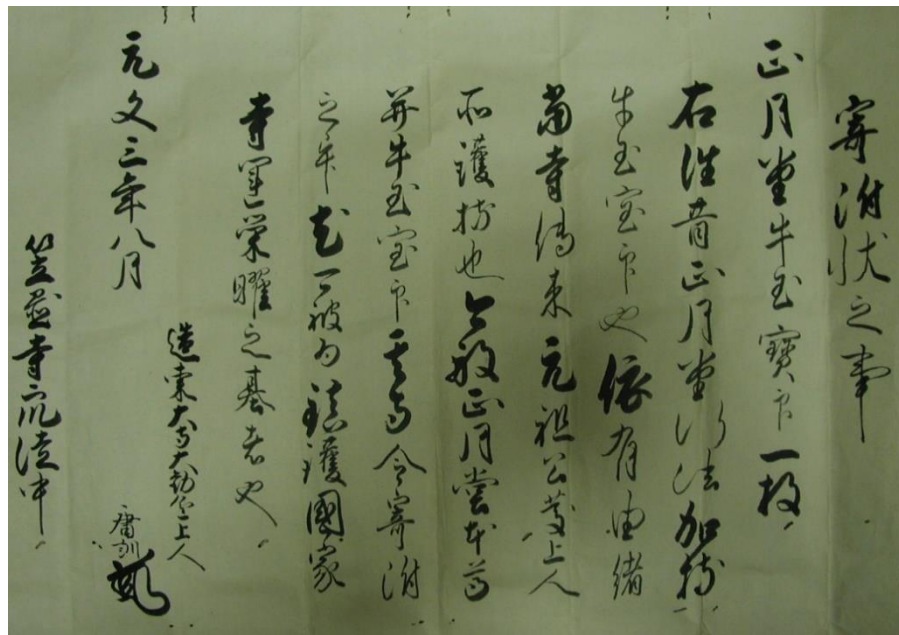 寄附状之事
正月堂牛玉寶印一枚
右往昔正月堂行法加持
牛玉宝印也依有由緒
當寺傳来元祖公慶上人
所護持也今般正月堂本尊
并牛玉宝印其寺令寄附
之畢
被為鎮護國家
寺運栄耀之基者也
造東大寺大勧進上人
庸訓
元文三年八月
笠置寺衆徒中